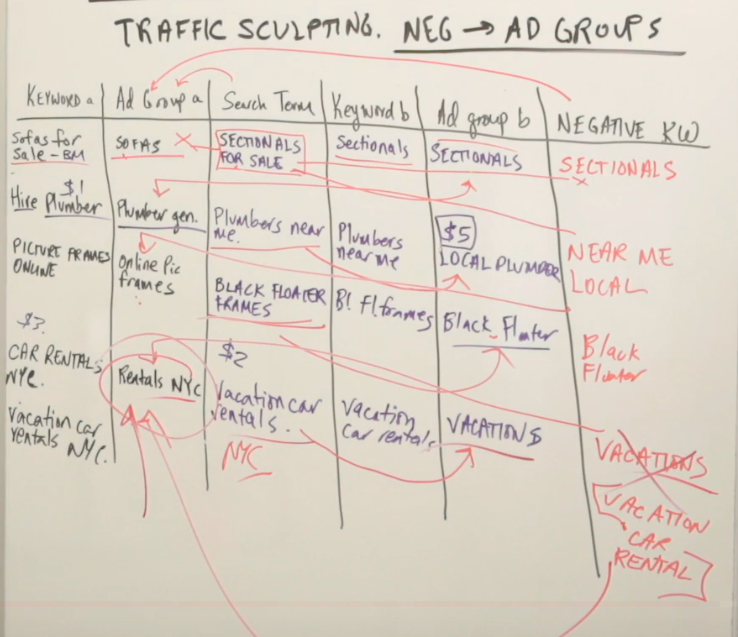 TRAFFIC SCULPTING. NEG → AD GROUPS
KEYWORD a
Ad Group a
Search Term
Keyword b
Ad group b
NEGATIVE KW
Sofas for
Sale - BM
SOFAS
SECTIONALS
FOR SALE
Sectionals
SECTIONALS
SECTIONALS
$1
Hire Plumber
Plumber gen.
Plumbers near
me.
Plumbers
near me
$5
LOCAL PLUMBER
NEAR ME
LOCAL
PICTURE FRAMES
ONLINE
Online Pic
frames
BLACK FLOATER
FRAMES
Bl. Fl. frames
Black Floater
Black
Floater
$3
CAR RENTALS
NYC.
Rentals NYC
$2
Vacation car
rentals.
NYC
Vacation
car rentals
VACATIONS
VACATIONS
Vacation car
rentals NYC.
VACATION
CAR
RENTAL